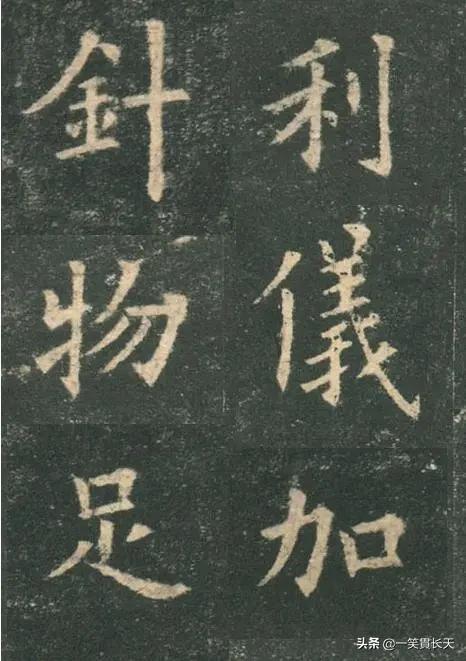 利儀加
針物足
头条 @一笑貫长天